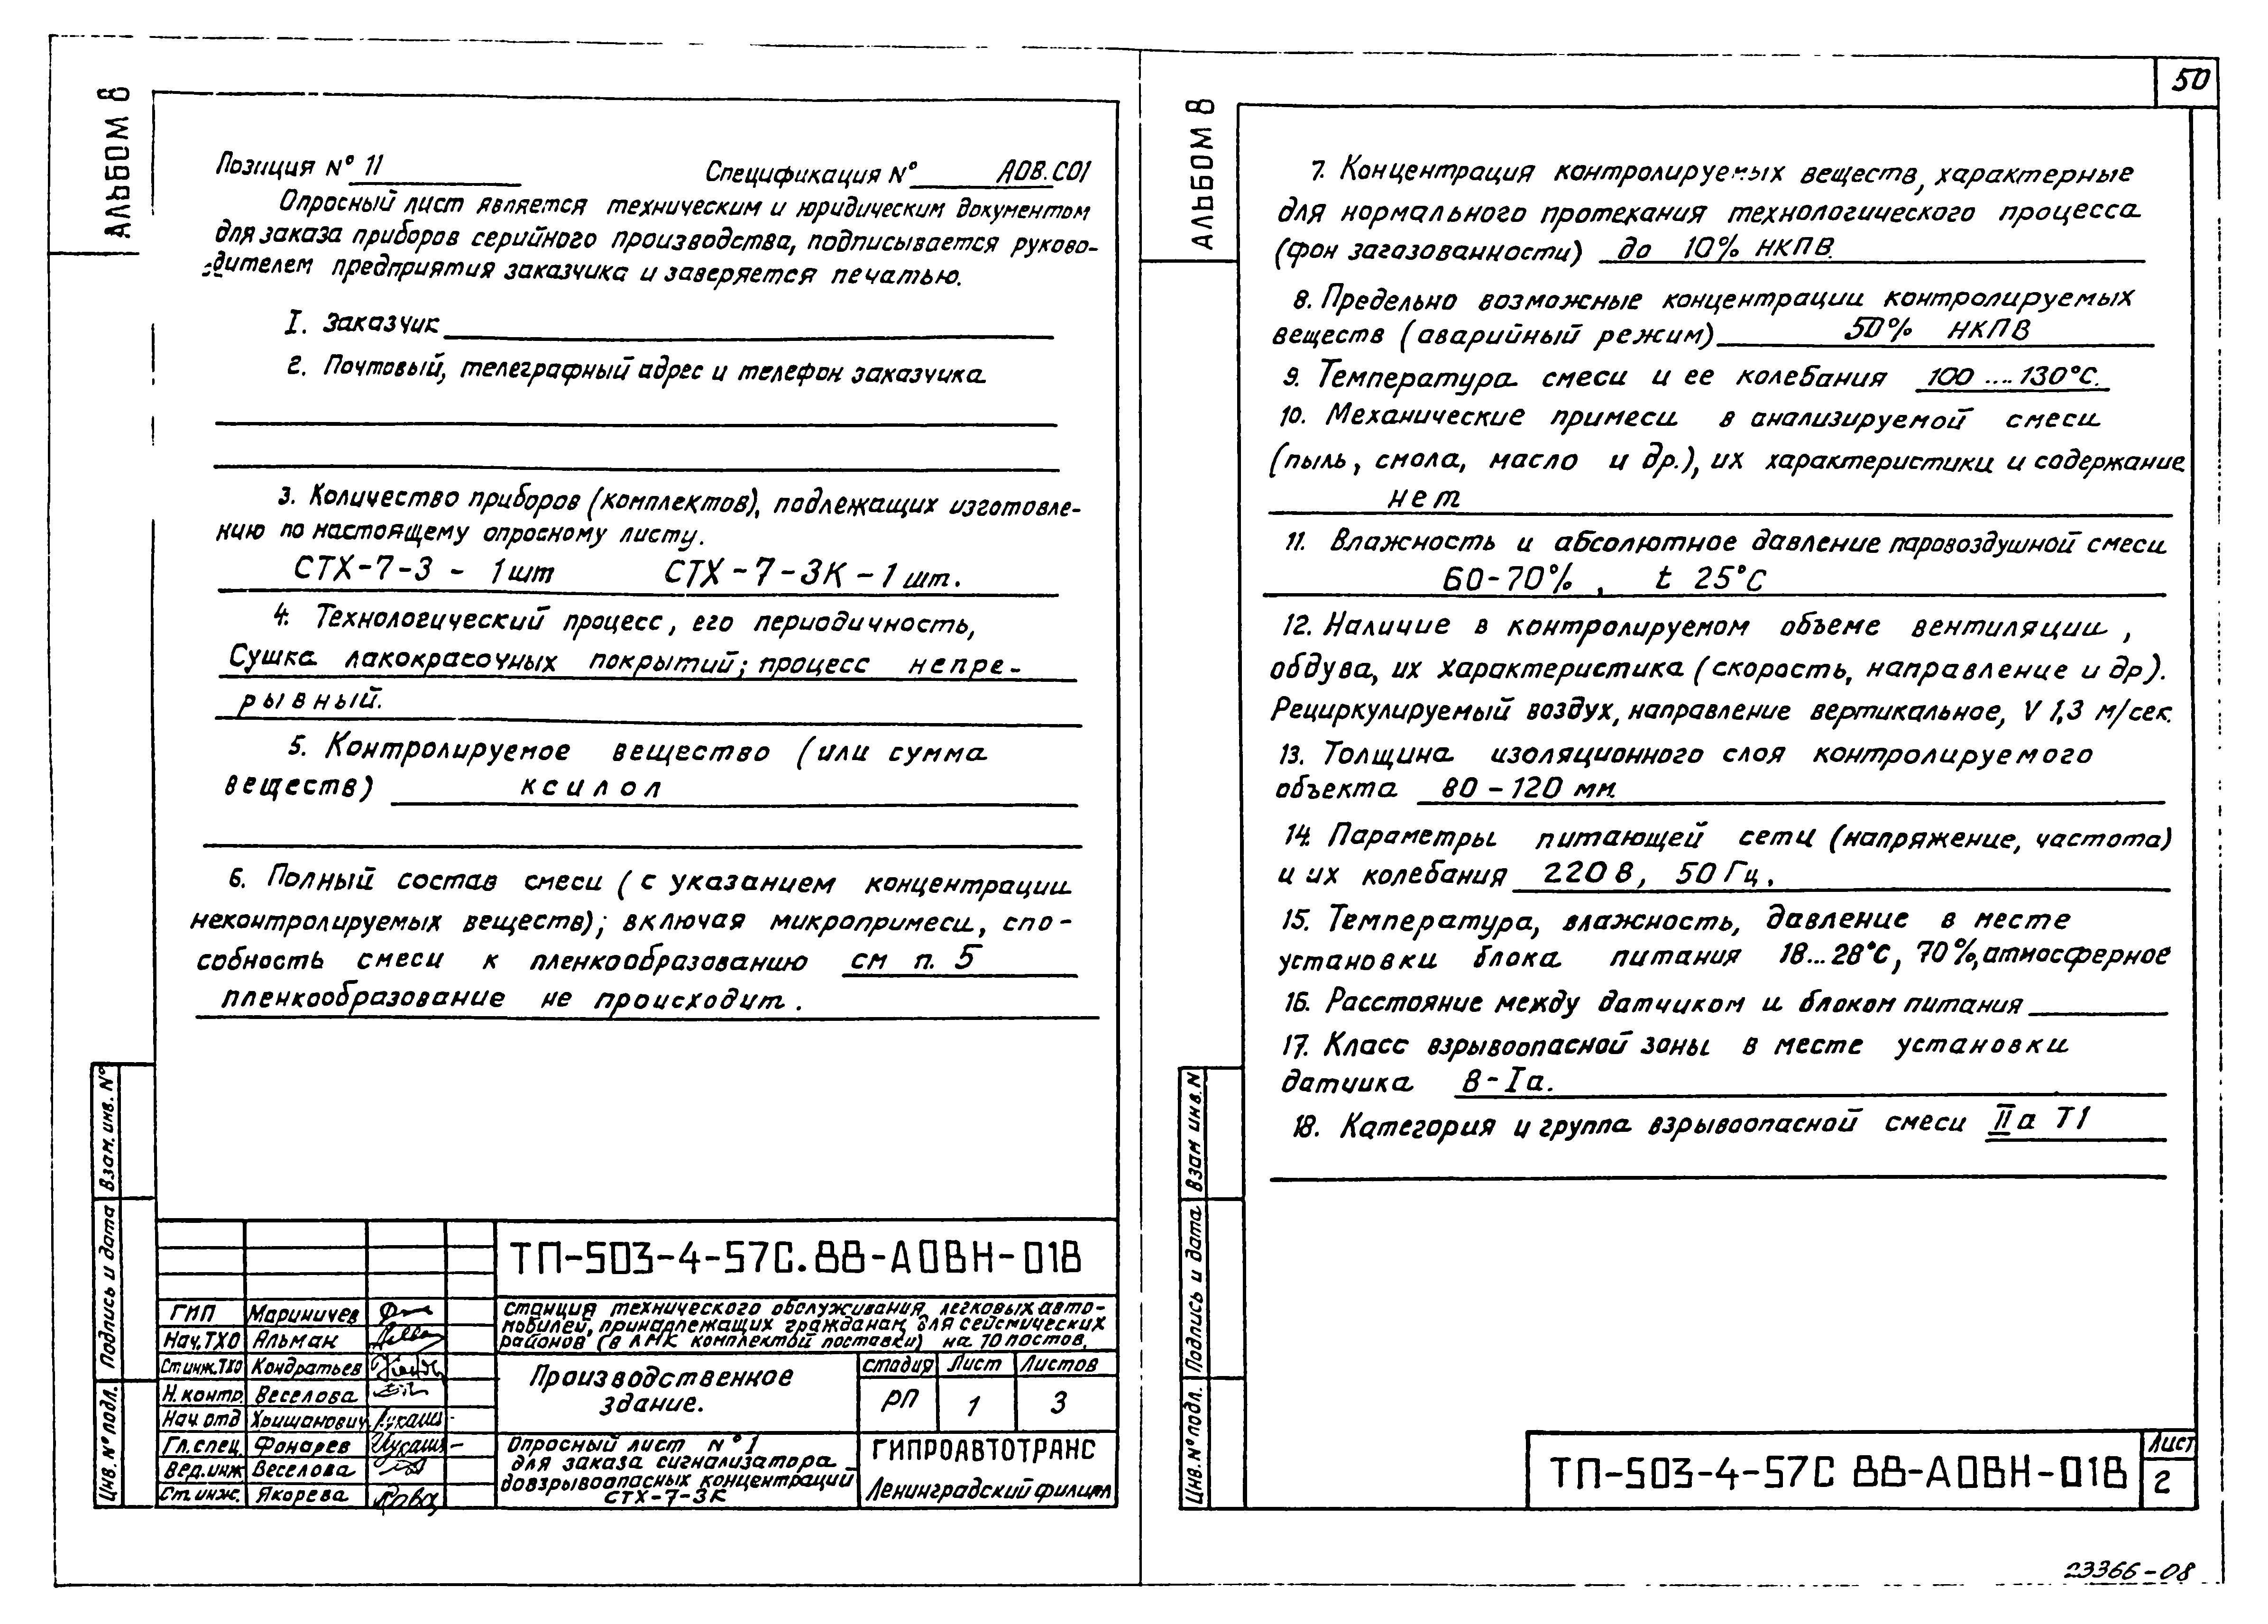 АЛЬБОМ 8
Позиция № 11 Спецификация № АОВ.СО1
Опросный лист является техническим и юридическим документом
для заказа приборов серийного производства, подписывается руково-
дителем предприятия заказчика и заверяется печатью.
I. Заказчик
2. Почтовый, телеграфный адрес и телефон заказчика
3. Количество приборов (комплектов), подлежащих изготовле-
нию по настоящему опросному листу.
СТХ-7-3 - 1шт СТХ-7-3К-1 шт.
4. Технологический процесс, его периодичность,
Сушка лакокрасочных покрытий; процесс непре-
рывный.
5. Контролируемое вещество (или сумма
веществ) ксилол
6. Полный состав смеси (с указанием концентрации
неконтролируемых веществ); включая микропримеси, спо-
собность смеси к пленкообразованию см п. 5
пленкообразование не происходит.
Взам. инв. №
Подпись и дата
Инв. № подл.
ТП-503-4-57С.88-АОВН-018
ГИП Мариничев
Нач.ТХО Альман
Ст.инж.ТХО Кондратьев
Н.контр. Веселова
Нач отд Хришанович
Гл.спец. Фонарев
Вед.инж Веселова
Ст.инж. Якорева
станция технического обслуживания легковых авто-
мобилей, принадлежащих гражданам, для сейсмических
районов (в ЛМК комплектой поставки) на 10 постов.
Производственное
здание.
стадия Лист Листов
РП 1 3
Опросный лист №1
для заказа сигнализатора
довзрывоопасных концентраций
СТХ-7-3К
ГИПРОАВТОТРАНС
Ленинградский филиал
50
АЛЬБОМ 8
7. Концентрация контролируемых веществ, характерные
для нормального протекания технологического процесса
(фон загазованности) до 10% НКПВ.
8. Предельно возможные концентрации контролируемых
веществ (аварийный режим) 50% НКПВ
9. Температура смеси и ее колебания 100 .... 130°С.
10. Механические примеси в анализируемой смеси
(пыль, смола, масло и др.), их характеристики и содержание
нет
11. Влажность и абсолютное давление паровоздушной смеси
60-70%, t 25°С
12. Наличие в контролируемом объеме вентиляции,
обдува, их характеристика (скорость, направление и др).
Рециркулируемый воздух, направление вертикальное, V 1,3 м/сек.
13. Толщина изоляционного слоя контролируемого
объекта 80-120 мм.
14. Параметры питающей сети (напряжение, частота)
и их колебания 220 В, 50 Гц.
15. Температура, влажность, давление в месте
установки блока питания 18...28°С, 70%, атмосферное
16. Расстояние между датчиком и блоком питания
17. Класс взрывоопасной зоны в месте установки
датчика В-Iа.
18. Категория и группа взрывоопасной смеси IIа Т1
Взам инв. №
Подпись и дата
Инв. № подл.
ТП-503-4-57С 88-АОВН-018
Лист
2
23366-08